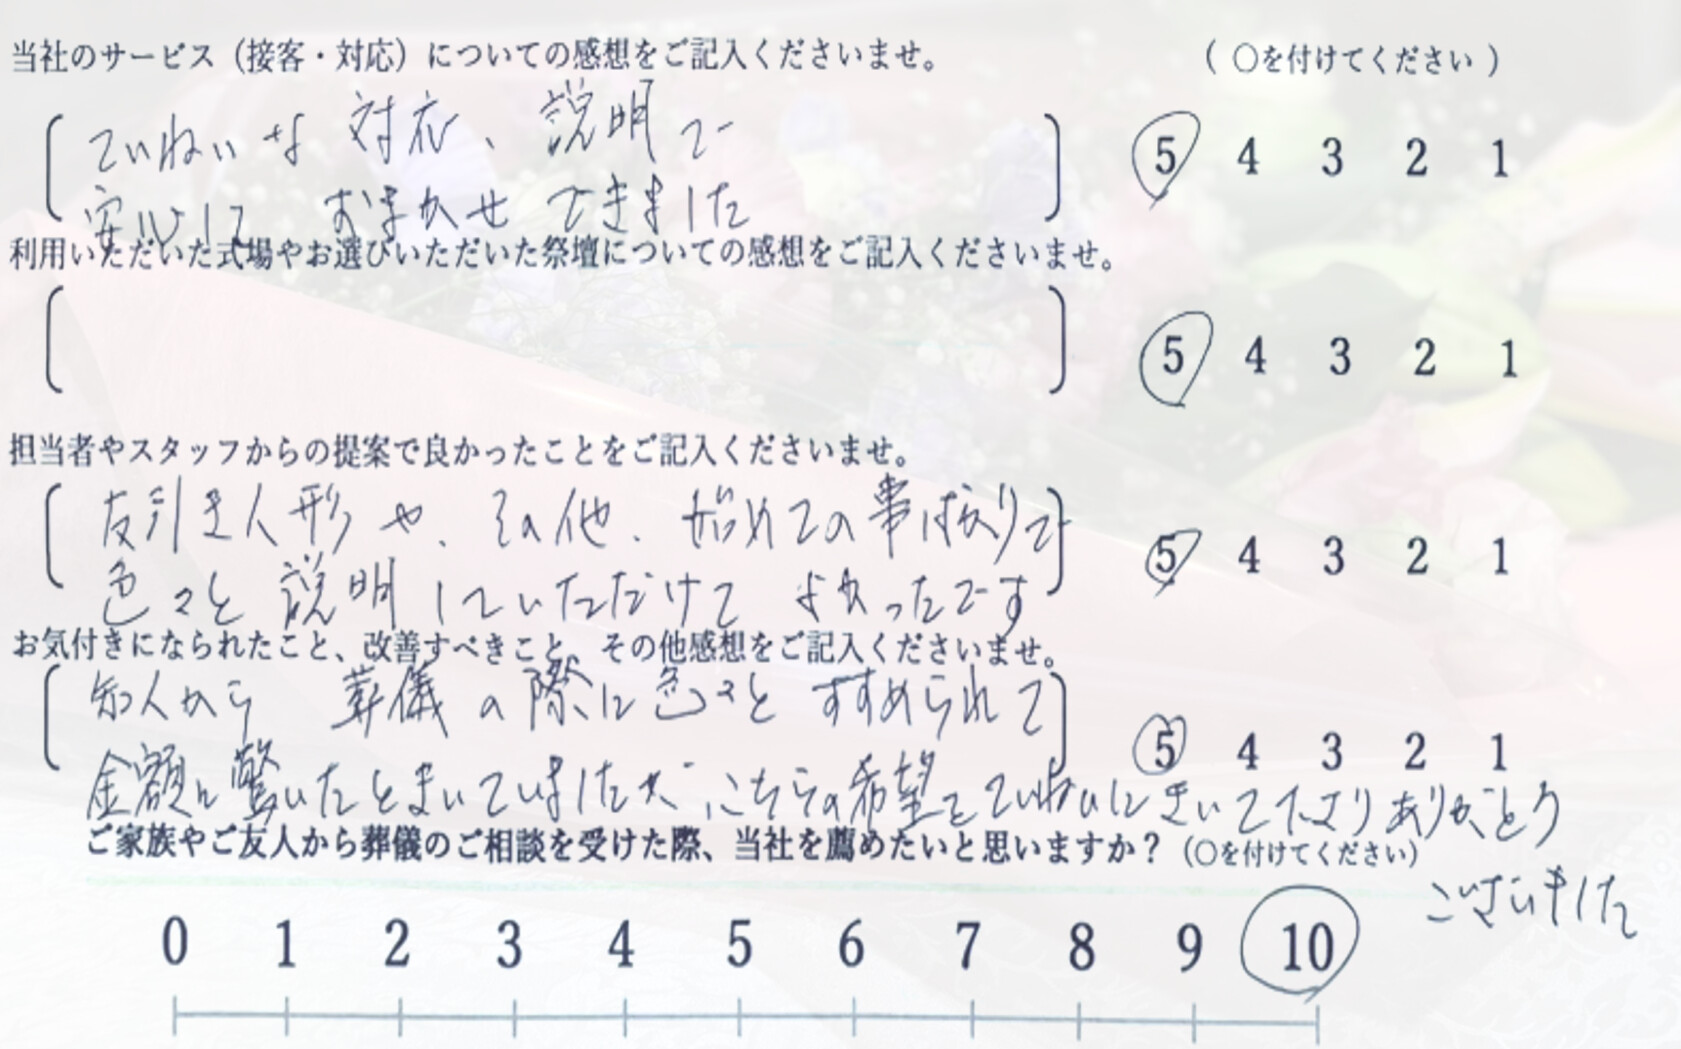 当社のサービス（接客・対応）についての感想をご記入くださいませ。 （ ○を付けてください ）
ていねいな 対応、説明で
5 4 3 2 1
安心して おまかせ できました
利用いただいた式場やお選びいただいた祭壇についての感想をご記入くださいませ。
5 4 3 2 1
担当者やスタッフからの提案で良かったことをご記入くださいませ。
友引き人形や、その他、始めての事ばかりで
5 4 3 2 1
色々と 説明していただけて よかったです
お気付きになられたこと、改善すべきこと、その他感想をご記入くださいませ。
知人から 葬儀の際に色々と すすめられて
5 4 3 2 1
金額に驚いたと いていましたが、こちらの希望をていねいにきいて下さりありがとう
ご家族やご友人から葬儀のご相談を受けた際、当社を薦めたいと思いますか？（○を付けてください）
ございました
0 1 2 3 4 5 6 7 8 9 10